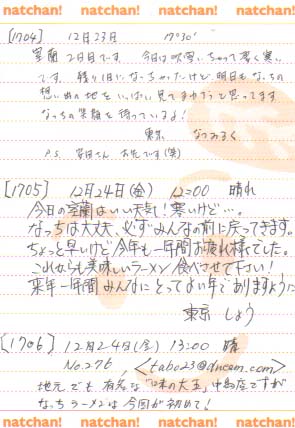 natchan! natchan! natchan! natchan!
[1704] 12月23日 17°30'
室蘭 2日目です。今日は吹雪いちゃって寒く寒い
です。残り1日になっちゃったけど、明日もなっちの
想い出の地をいっぱい見てまわろうと思ってます
なっちの笑顔を待っているよ!
東京 なつみるく
P.S. 安田さん お先です(笑)
[1705] 12月24日(金) 12:00 晴れ
今日の室蘭はいい天気!寒いけど…。
なっちは大丈夫、必ずみんなの前に戻ってきます。
ちょっと早いけど今年も一年間お疲れ様でした。
これからも美味しいラーメン食べさせて下さい!
来年一年間みんなにとってよい年でありますように
東京 しょう
[1706] 12月24日(金) 13:00 晴
No.276, <tabo23@dream.com>
地元でも有名な「味の大王」中島店ですが
なっちラーメンは今回が初めて!
natchan! natchan! natchan! natchan!